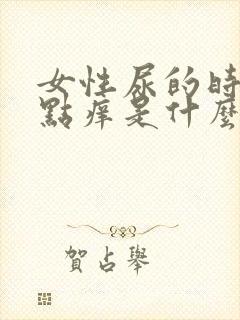 女性尿的時
點癢是什麼
賀占舉